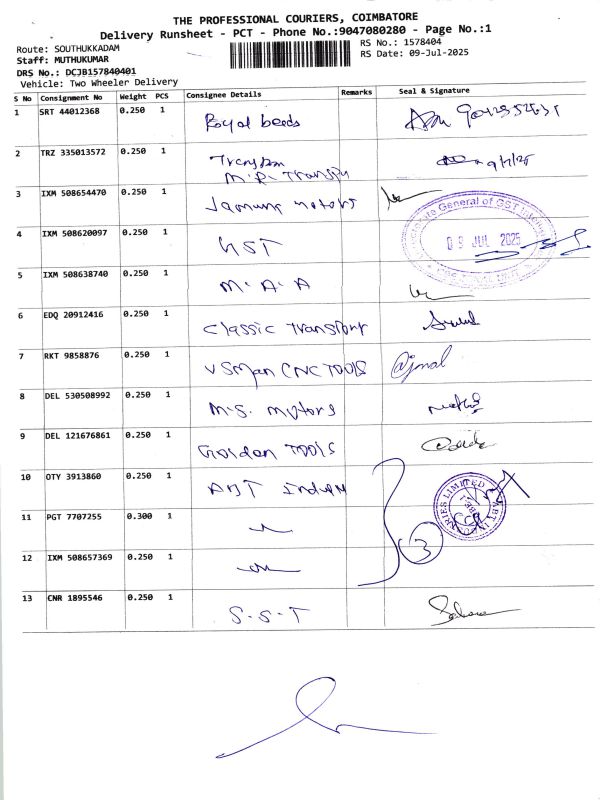 THE PROFESSIONAL COURIERS, COIMBATORE
Delivery Runsheet - PCT - Phone No.:9047080280 - Page No.:1
Route: SOUTHUKKADAM
RS No.: 1578404
Staff: MUTHUKUMAR
RS Date: 09-Jul-2025
DRS No.: DCJB157840401
Vehicle: Two Wheeler Delivery
S No Consignment No Weight PCS Consignee Details Remarks Seal & Signature
1 SRT 44012368 0.250 1 Royal beeds
2 TRZ 335013572 0.250 1 M.R. Transpu 9/7/25
3 IXM 508654470 0.250 1 Jamuna motors
4 IXM 508620097 0.250 1 GST
General of GST
09 JUL 2025
5 IXM 508638740 0.250 1 M.A.A
6 EDQ 20912416 0.250 1 Classic Transport
7 RKT 9858876 0.250 1 VSMan CNC TOOLS Ajmal
8 DEL 530508992 0.250 1 M.S. motors
9 DEL 121676861 0.250 1 Golden TOOLS
10 OTY 3913860 0.250 1
11 PGT 7707255 0.300 1
LIMITED
3
12 IXM 508657369 0.250 1
13 CNR 1895546 0.250 1 S.S.T